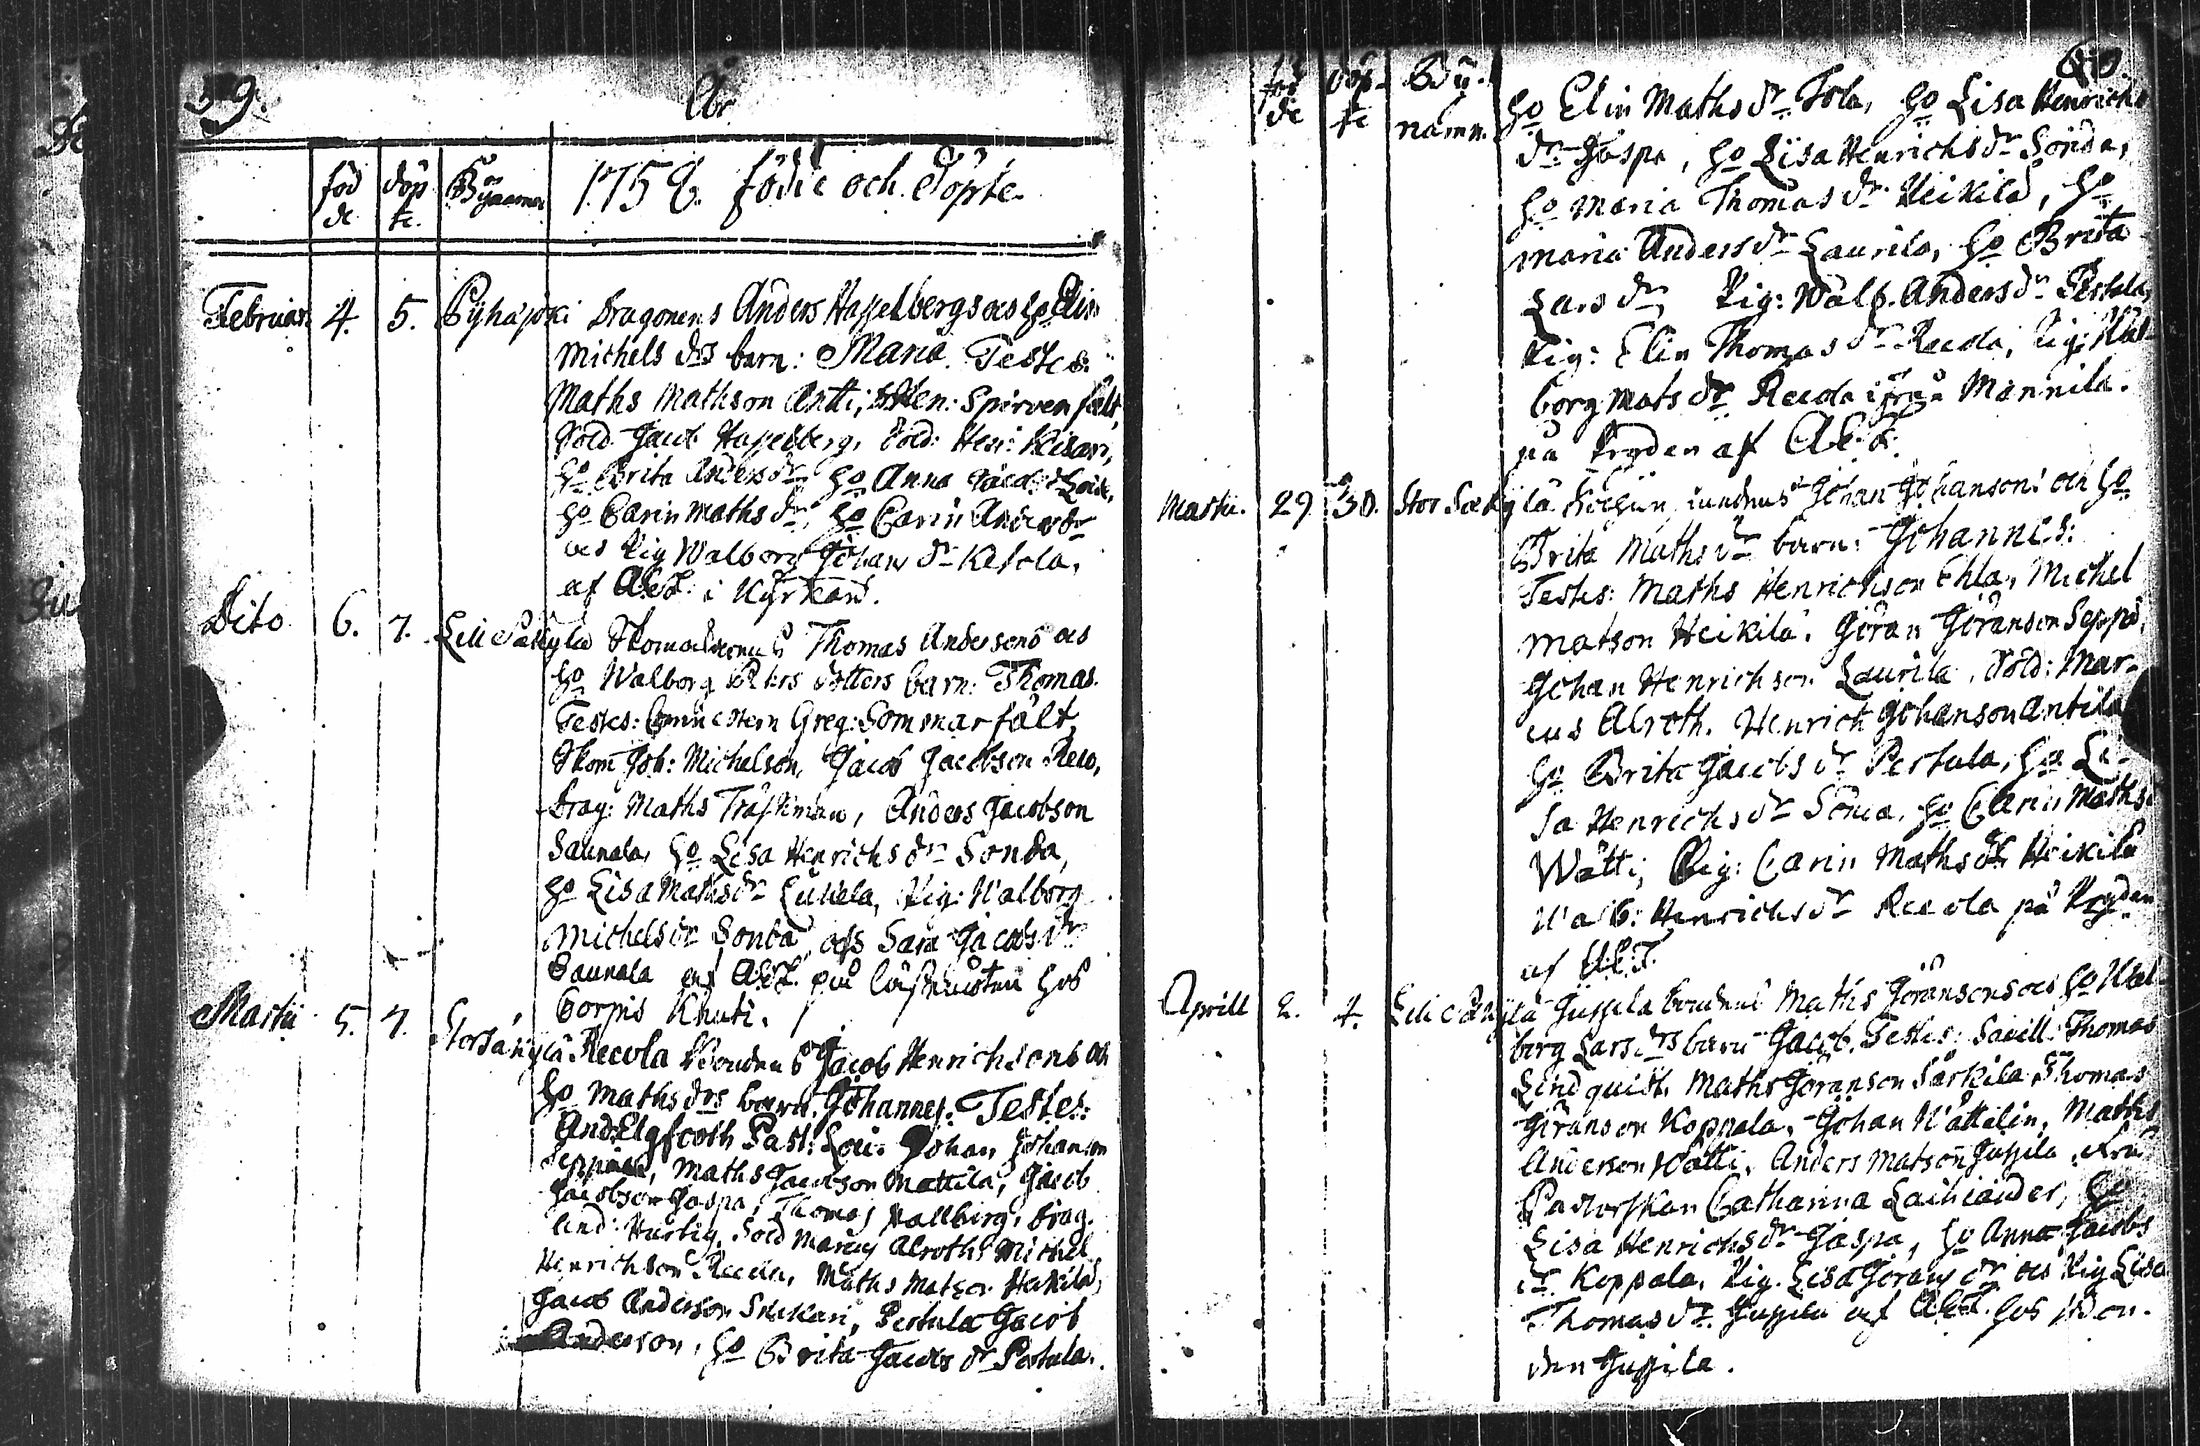 59.
År
föd
de
döp
te.
Bynamn
1758. födde och döpte.
Februar. 4. 5. Pyhäjoki Dragonens Anders Hasselbergs och h:o Elin
Michels drs barn: Maria. Testes:
Maths Mathson Antti, Hen: Spirvenfält,
Sold. Jacob Hasselberg, Sold: Hen: Kisari,
ho Brita Anders dr ho Anna
ho Carin Maths dr, ho Carin Anders dr
och Pig Walborg Johans dr Ketola,
af A.E.T. i Kyrkan.
Dito 6. 7. Lill Säkylä Skomakarens Thomas Andersons och
ho Walborg Påhrs dotters barn: Thomas.
Testes: Greg: Sommarfält,
Skom Joh: Michelson, Jacob Jacobson Reko,
Drag: Maths Träskman, Anders Jacobson
Saunala, ho Lisa Henrichs dr Sonda,
ho Lisa Maths dr Pig: Walborg
Michels dr Sonda, och Sara Jacobs dr
Saunala af A.E.T. på hos
Corpis Knuti.
Martii 5. 7. Stor Säkylä Recola Bondens Jacob Henrichsons och
ho Maths drs barn: Johannes: Testes:
And: Elgfooth Past: Loci. Johan Johanson
Seppälä, Maths Jacobson Mattila, Jacob
Jacobson Jaspa, Thomas Wallberg, Drag.
And: Hurtig, Sold Marcus Alroth, Michel
Henrichson Recola, Maths Matson Heikilä,
Jacob Anderson Pertula Jacob
Anderson, ho Brita Jacobs dr Pertula.
60.
föd
de
döp-
te
By-
namn.
ho Elin Maths dr Tola, ho Lisa Henrichs
dr Jaspa, ho Lisa Henrichs dr Sonda,
ho Maria Thomas dr Heikilä, ho
Maria Anders dr Laurila, ho Brita
Lars dr, Pig: Walb. Anders dr Pertula,
Pig: Elin Thomas dr Recola, Pig: Wal-
borg Mats dr Recola ifrån Mannila.
på Prgden af A.E.T.
Martii. 29 30. Stor Säkylä Johan Johansons och ho
Brita Maths dr barn: Johannes:
Testes: Maths Henrichson Ehla, Michel
Matson Heikilä. Göran Göranson Seppä,
Johan Henrichson Laurila, Sold: Mar-
cus Alroth. Henrich Johanson Antila
ho Brita Jacobs dr Pertula, ho Li-
sa Henrichs dr Sonda, ho Carin Maths
Wätti, Pig: Carin Maths dr Heikilä
Walb: Henrichs dr Recola på Prgden
af A.E.T.
Aprill 2. 4. Lill Säkylä Jussila bondens Maths Göransons och ho Wal-
borg Lars drs barn Jacob. Testes: Thomas
Lindquist, Maths Göranson Särkilä Thomas
Göranson Koppala, Johan Wättelin, Maths
Anderson Wätti, Anders Matson Jussila, Fru
Pastorskan Catharina ho
Lisa Henrichs dr Jaspa, ho Anna Jacobs
dr Koppala, Pig. Lisa Görans dr och Pig Lisa
Thomas dr Jussila af A.E.T. hos Bon-
den Jussila.